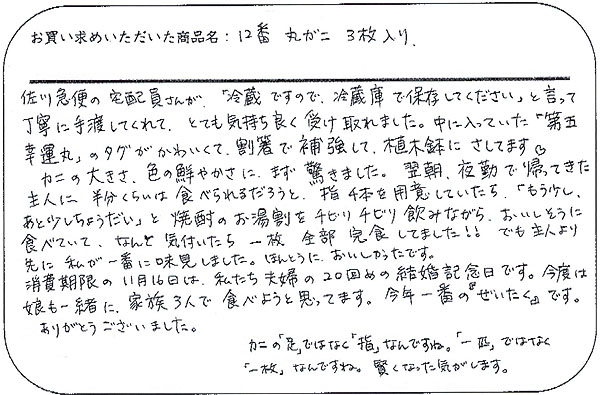 お買い求めいただいた商品名：12番 丸ガニ 3枚入り.
佐川急便の宅配員さんが、「冷蔵ですので、冷蔵庫で保存してください」と言って
丁寧に手渡してくれて、とても気持ち良く受け取れました。中に入っていた「第五
幸運丸」のタグがかわいくて、割箸で補強して、植木鉢にさしてます♡
カニの大きさ、色の鮮やかさに、まず驚きました。翌朝、夜勤で帰ってきた
主人に半分くらいは食べられるだろうと、指4本を用意していたら、「もう少し、
あと少しちょうだい」と焼酎のお湯割をチビリチビリ飲みながら、おいしそうに
食べていて、なんと気付いたら一枚全部完食してました!! でも主人より
先に私が一番に味見しました。ほんとうに、おいしかったです。
消費期限の11月16日は、私たち夫婦の20回めの結婚記念日です。今度は
娘も一緒に、家族3人で食べようと思ってます。今年一番の『ぜいたく』です。
ありがとうございました。
カニの「足」ではなく「指」なんですね。「一匹」ではなく
「一枚」なんですね。賢くなった気がします。